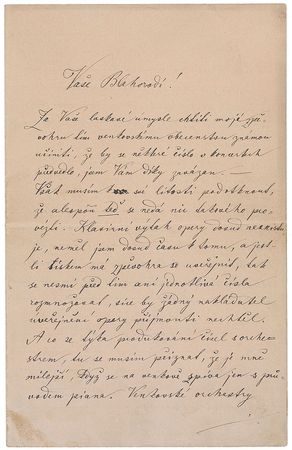 Vaše Blahorodí!
Za Vaše laskavé úmysle chtíti moji zpě-
vohru tím venkovskému obecenstvu známou
učiniti, že by se některé číslo v koncertech
předvedlo, jsem Vám díky zavázán. —
Však musím k své lítosti podotknout,
že alespoň teď se nedá nic takového pro-
vozti. Klavírní výtah opery dosud neexistu-
je, neměl jsem dosud času k tomu, a jest-
li tiskem má zpěvohra se uveřejnit, tak
se nesmí před tím ani jednotlivá čísla
rozmnožovat, sice by žádný nakladatel
uveřejnění opery přijmouti nechtěl.
A co se týká produkování čísel s orche-
strem, tu se musím přiznat, že je mně
milejší, když se na venkově zpívá jen s prů-
vodem piana. Venkovské orchestry